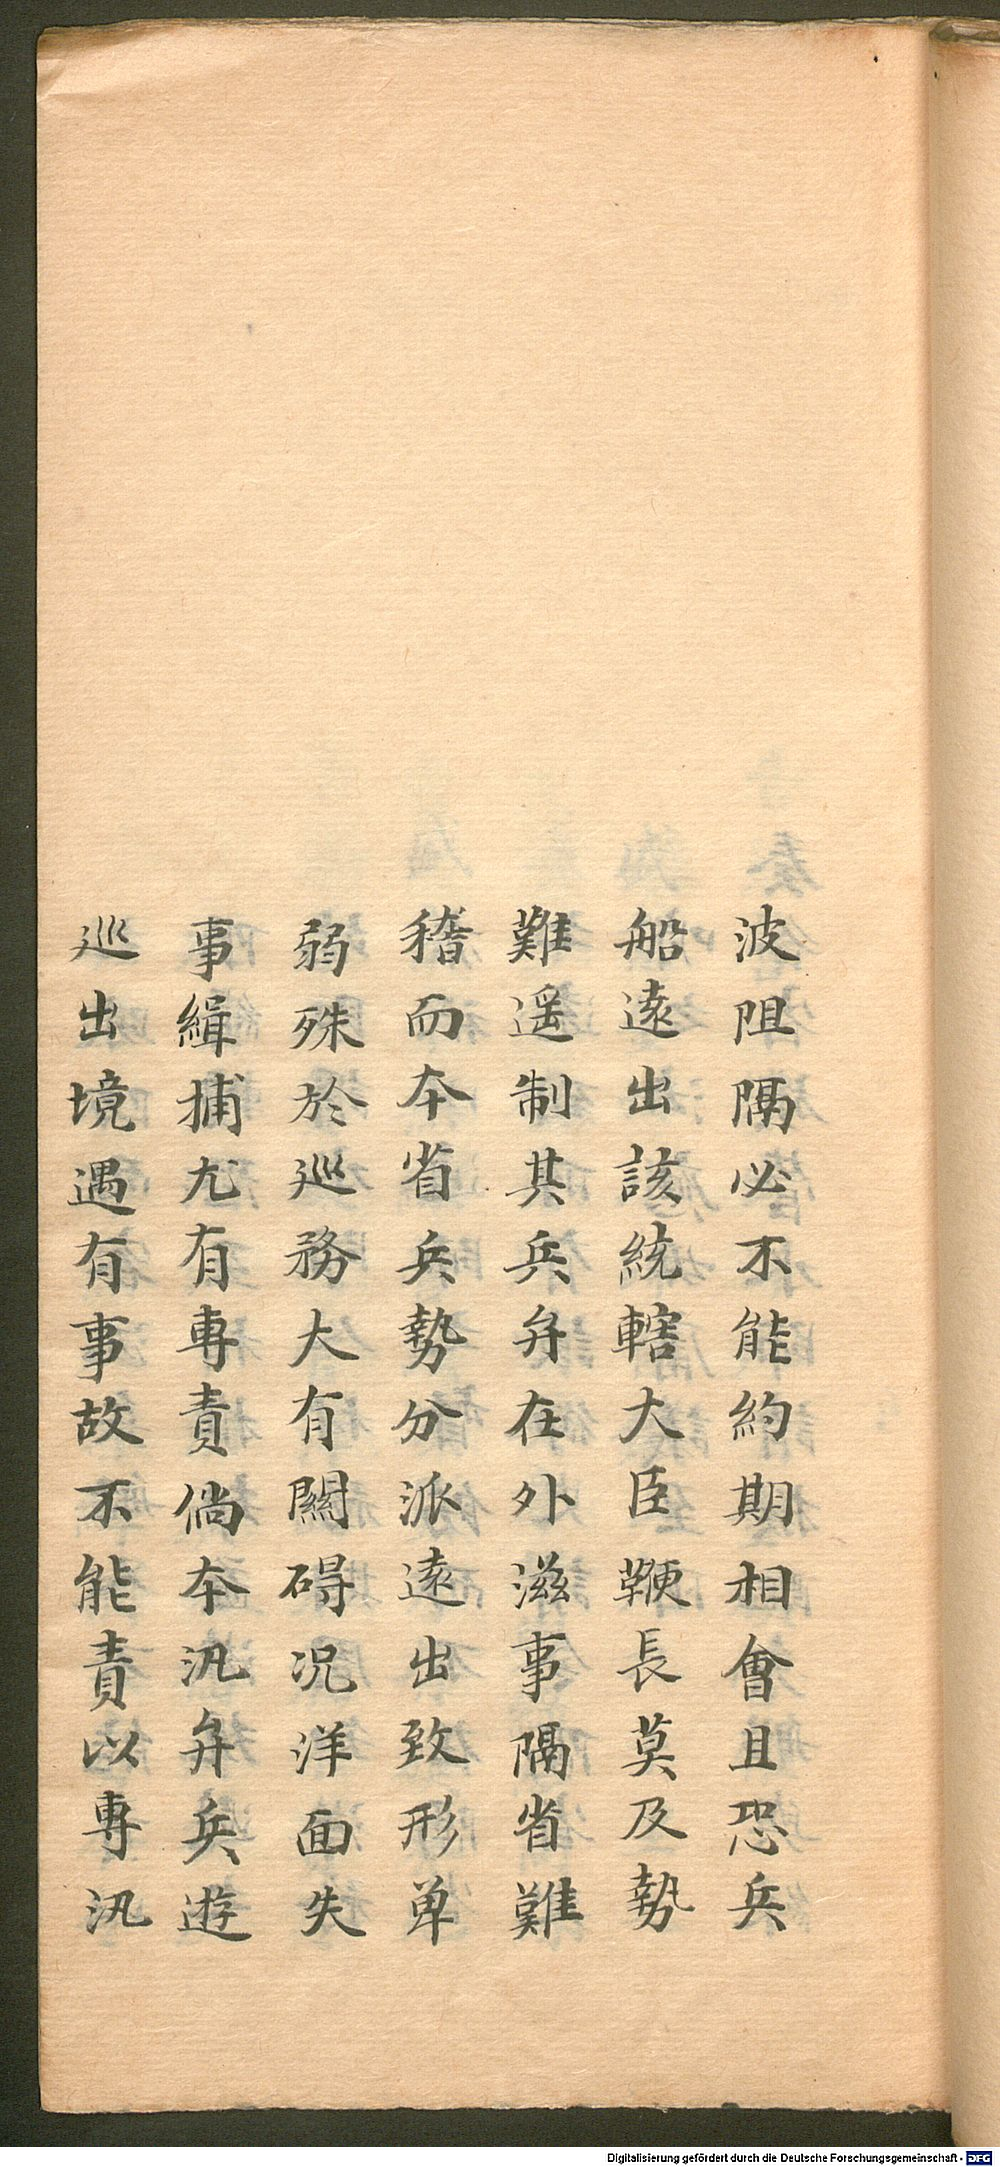 波阻隔必不能約期相會且恐兵
船遠出該統轄大臣鞭長莫及勢
難遥制其兵弁在外滋事隔省難
稽而本省兵勢分派遠出致形单
弱殊於巡務大有關碍况洋面失
事緝捕尤有專責倘本汛弁兵遊
巡出境遇有事故不能責以專汛
Digitalisierung gefördert durch die Deutsche Forschungsgemeinschaft - DFG